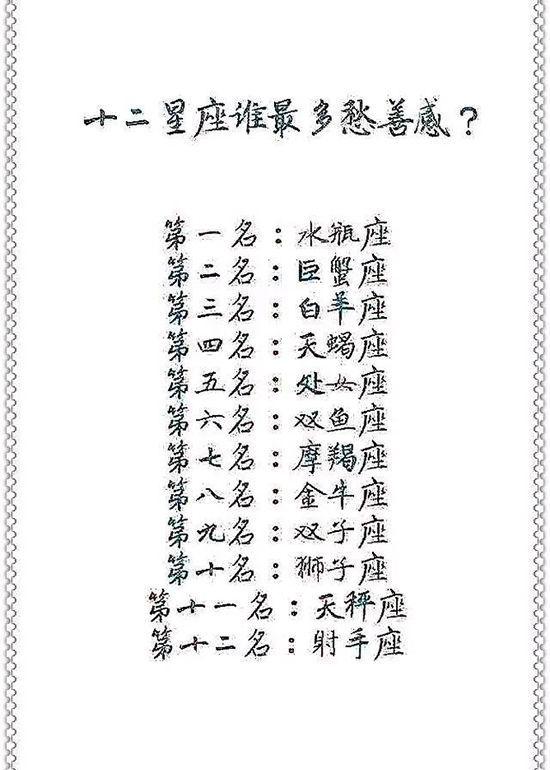 十二星座谁最多愁善感？
第一名：水瓶座
第二名：巨蟹座
第三名：白羊座
第四名：天蝎座
第五名：处女座
第六名：双鱼座
第七名：摩羯座
第八名：金牛座
第九名：双子座
第十名：狮子座
第十一名：天秤座
第十二名：射手座